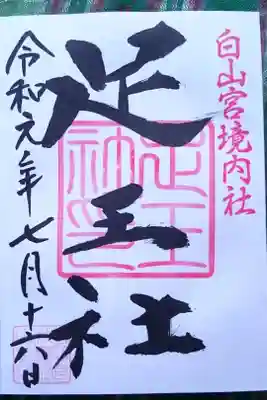 白山宮境内社
足王社
足王神璽
令和元年七月十六日